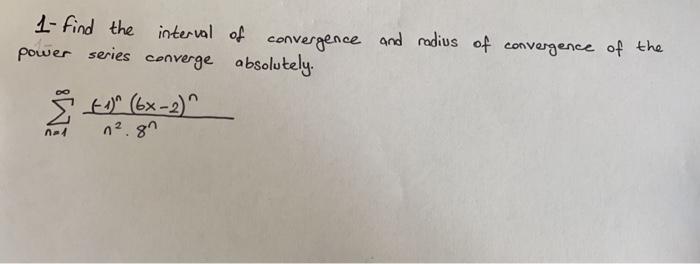 1- Find the interval of convergence and radius of convergence of the
power series converge absolutely.
∞
∑ (-1)ⁿ (6x-2)ⁿ
n=1 n². 8ⁿ